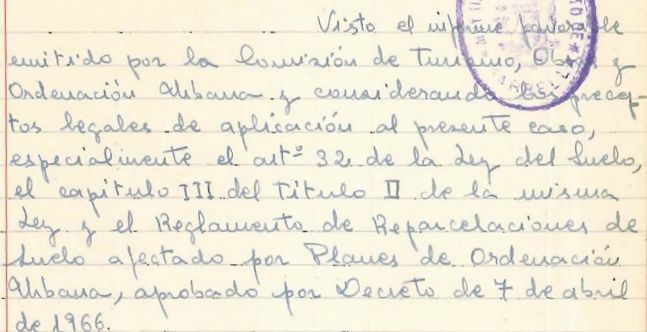 Visto el informe favorable
emitido por la Comisión de Turismo, Obras y
Ordenación Urbana y considerando los precep-
tos legales de aplicación al presente caso,
especialmente el artº 32 de la Ley del Suelo,
el capítulo III del Título II de la misma
Ley y el Reglamento de Reparcelaciones de
Suelo afectado por Planes de Ordenación
Urbana, aprobado por Decreto de 7 de abril
de 1966.